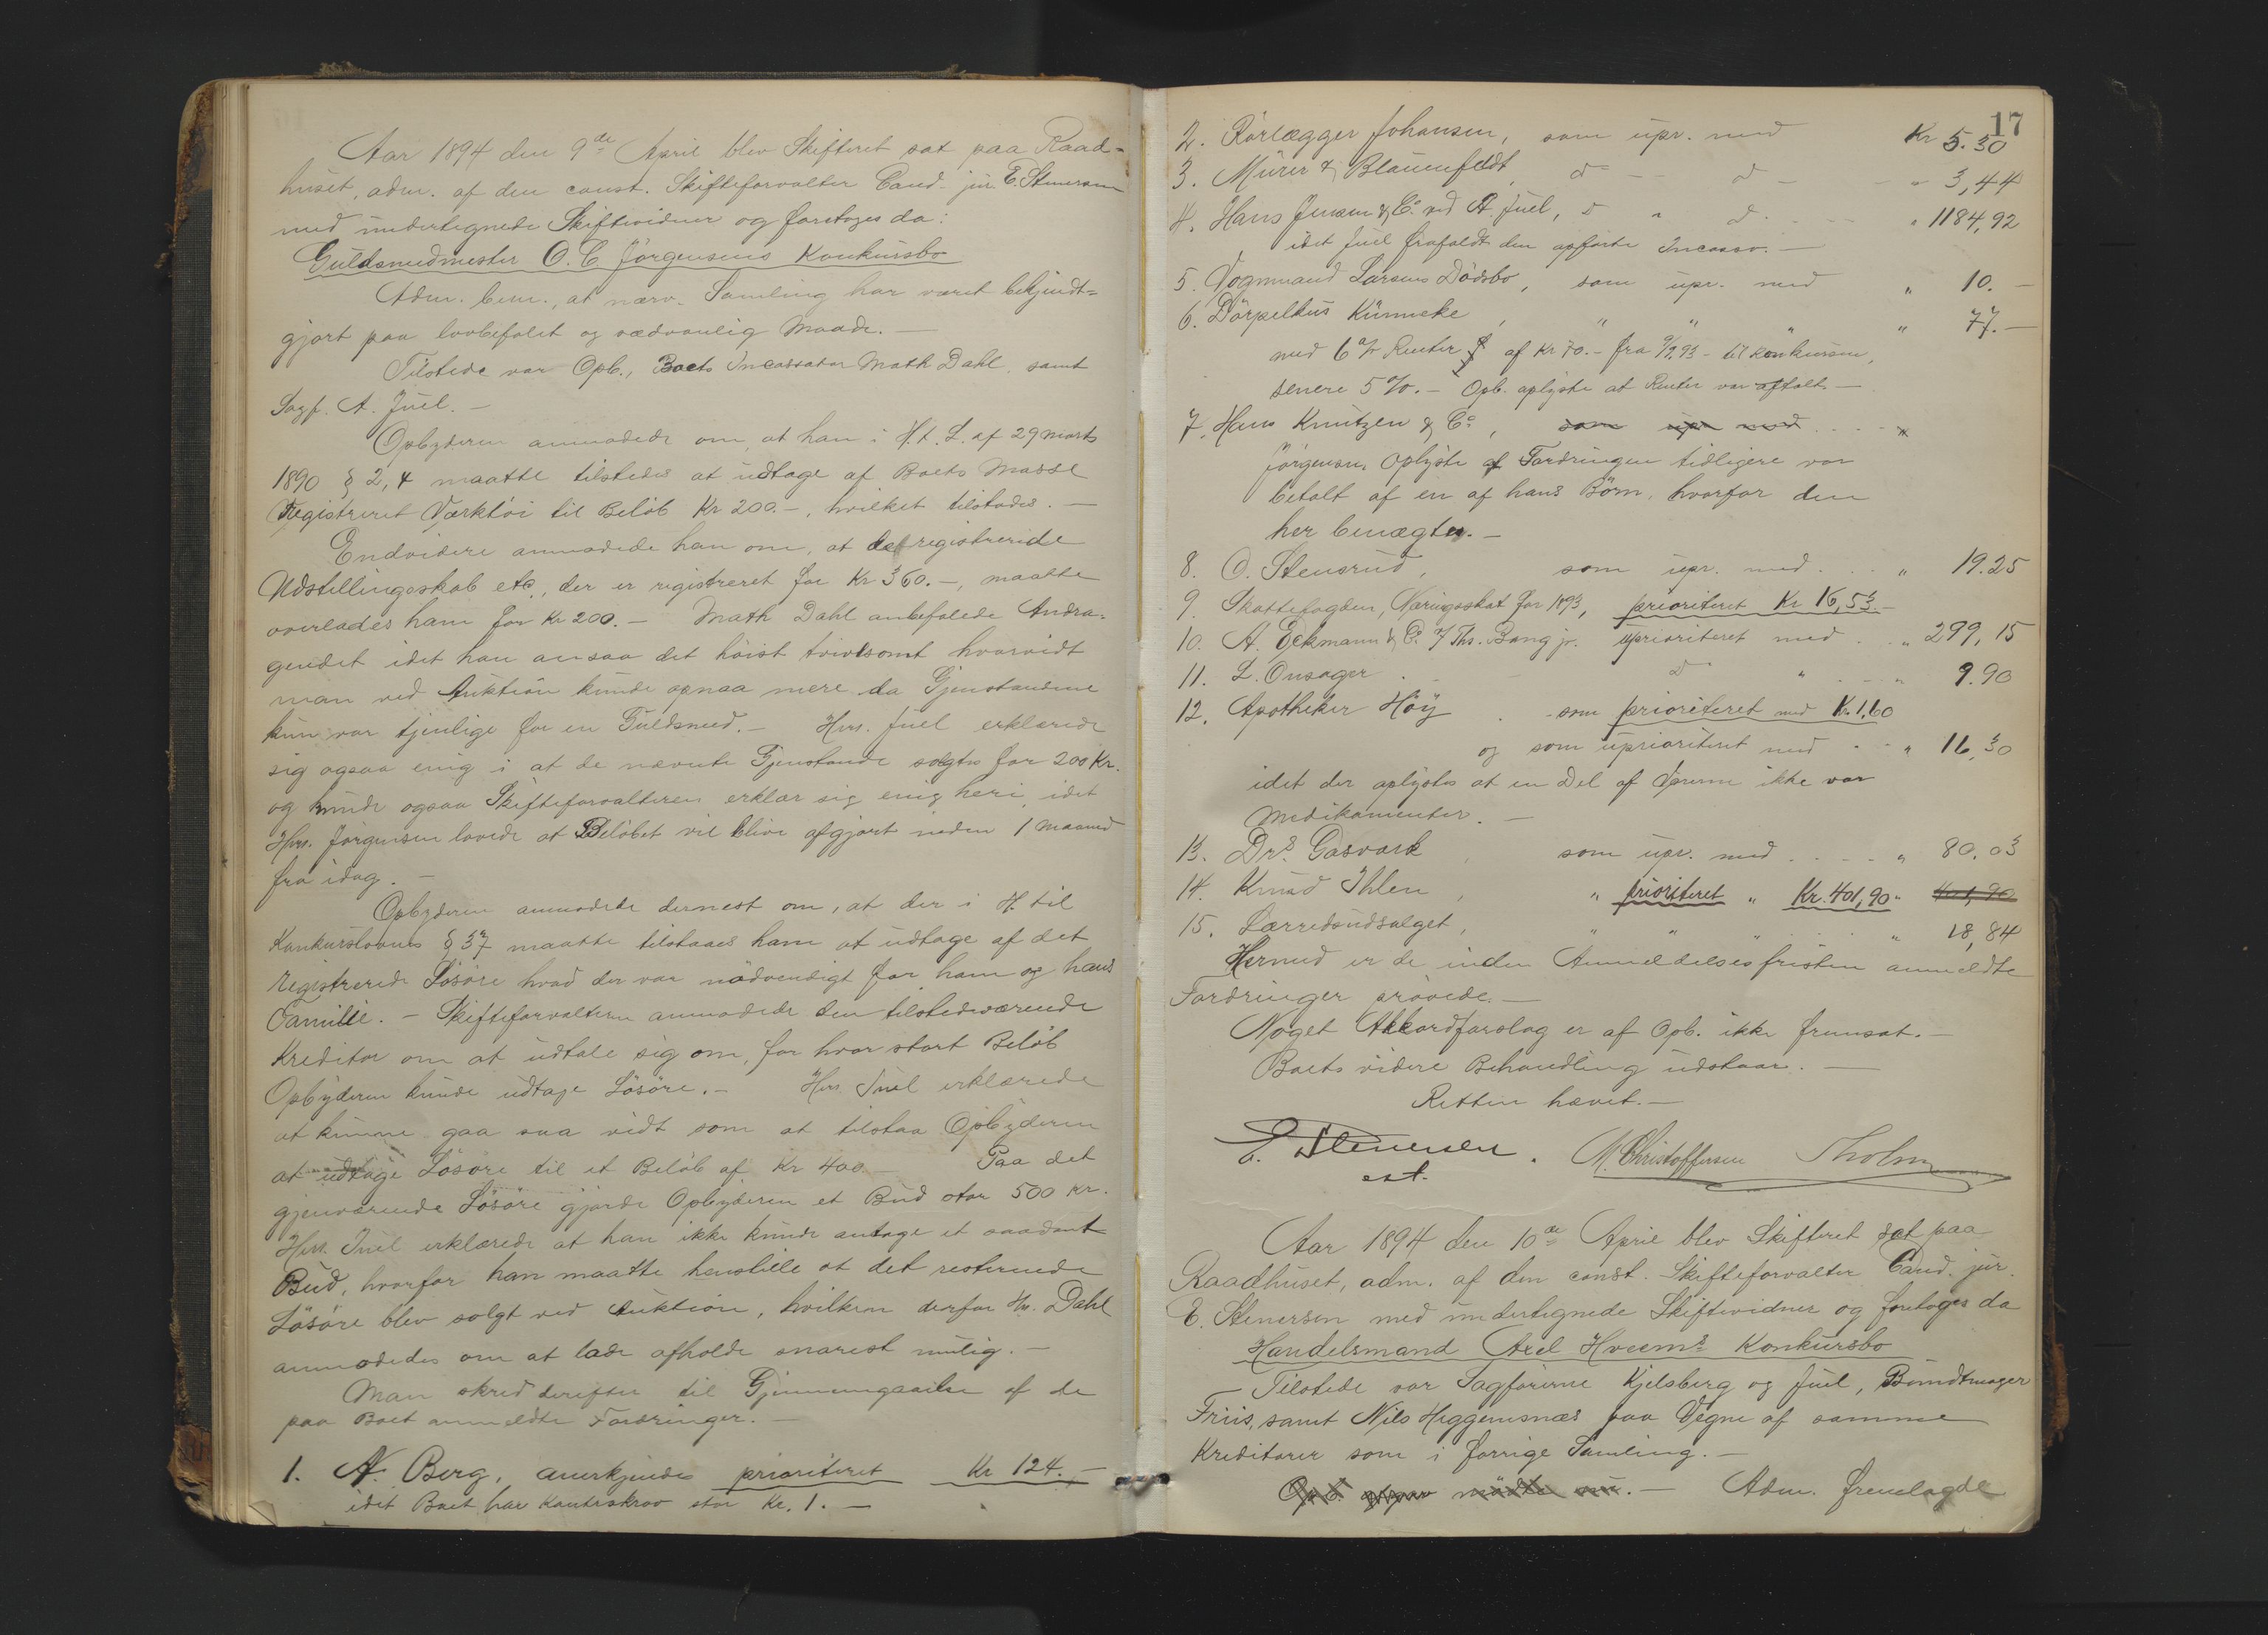 Aar 1894 den 9de April blev Skifteret sat paa Raad-
huset, adm. af den const. Skifteforvalter Cand. jur. E. Stenersen
med undertegnede Skiftevidner og foretoges da:
Guldsmedmester O. C. Jörgensens Konkursbo
Adm. bem., at nærv. Samling har været bekjendt=
gjort paa lovbefalet og sædvanlig Maade. —
Tilstede var Opb., Boets Incassator Math Dahl, samt
Sagf. A. Juel. —
Opbyderen anmodede om at han i H. t. L. af 29 Marts
1890 § 2, 4 maatte tilstedes at udtage af Boets Masse
Registreret Værktöi til Belöb Kr 200.-, hvilket tilstodes. —
Endvidere anmodede han om, at det registrerede
Udstillingsskab etc., der er registreret for Kr 360.-, maatte
overlades ham for Kr 200. — Math Dahl anbefalede Andra-
gendet idet han ansaa det höist tvivlsomt hvorvidt
man ved Auktion kunde opnaa mere da Gjenstandene
kun var tjenlige for en Guldsmed. — Hrr. Juel erklærede
sig ogsaa enig i at de nævnte Gjenstande solgtes for 200 Kr.
og kunde ogsaa Skifteforvalteren erklær sig enig heri, idet
Hrr. Jörgensen lovede at Belöbet vil blive afgjort inden 1 Maaned
fra idag. —
Opbyderen anmodede dernest om, at der i H. til
Konkurslovens § 37 maatte tilstaaes ham at udtage af det
registrerede Lösöre hvad der var nödvendigt for ham og hans
Familie. — Skifteforvalteren anmodede den tilstedeværende
Kreditor om at udtale sig om, for hvor stort Belöb
Opbyderen kunde udtage Lösöre. — Hrr. Juel erklærede
at kunne gaa saa vidt som at tilstaa Opbyderen
at udtage Lösöre til et Belöb af Kr 400. — Paa det
gjenværende Lösöre gjorde Opbyderen et Bud stor 500 Kr.
Hrr. Juel erklærede at han ikke kunde antage et saadant
Bud, hvorfor han maatte henstille at det resterende
Lösöre blev solgt ved Auktion, hvilken derfor Hr. Dahl
anmodedes om at lade afholde snarest mulig. —
Man skred derefter til Gjennemgaaelse af de
paa Boet anmeldte Fordringer. —
1. N. Berg, anerkjendes prioriteret Kr 124. —
idet Boet har Kontrakrav stor Kr. 1. —
17
2. Rörlægger Johansen, som upr. med Kr 5.30
3. Mürer & Blauenfeldt, do — do — " 3,44
4. Hans Jensen & Co ved A. Juel, do " do " 1184,92
idet Juel frafaldt den opförte Incasso. —
5. Vognmand Larsens Dödsbo, som upr. med " 10. —
6. Dörpelkus Künneke, " " " " 77. —
med 6% Renter af Kr 70. — fra 9/9 93 — til Konkursen,
senere 5%. — Opb. oplyste at Renter var aftalt —
7. Hans Knutzen & Co, som upr. med "
Jörgensen oplyste at Fordringen tidligere var
betalt af en af hans Börn, hvorfor den
her benægtes. —
8. O. Stensrud, som upr. med " 19.25
9. Skattefogden, Næringsskat for 1893, prioriteret Kr 16,53. —
10. A. Eckmann & Co v/ Ths. Bang jr. uprioriteret med " 299,15
11. L. Onsager do " " 9.90
12. Apotheker Höy som prioriteret med Kr. 1,60
og som uprioriteret med " 16,30
idet der oplystes at en Del af Varerne ikke var
Medikamenter. —
13. Drs. Gasværk, som upr. med " 80.03
14. Knud Ihlen, " prioriteret " Kr. 401,90 " 401,90
15. Lærredsudsalget, " " " " 18,84
Hermed er de inden Anmeldelsesfristen anmeldte
Fordringer prövede. —
Noget Akkordforslag er af Opb. ikke fremsat. —
Boets videre Behandling udstaar. —
Retten hævet. —
E. Stenersen. M. Christoffersen Tholm
cst.
Aar 1894 den 10de April blev Skifteret sat paa
Raadhuset, adm. af den const. Skifteforvalter Cand. jur.
E. Stenersen med undertegnede Skiftevidner og foretoges da
Handelsmand Axel Hveems Konkursbo
Tilstede var Sagförerne Kjelsberg og Juel, Bundtmager
Friis, samt Nils Heggemsnæs paa Vegne af samme
Kreditorer som i forrige Samling. —
mödte — Adm. fremlagde